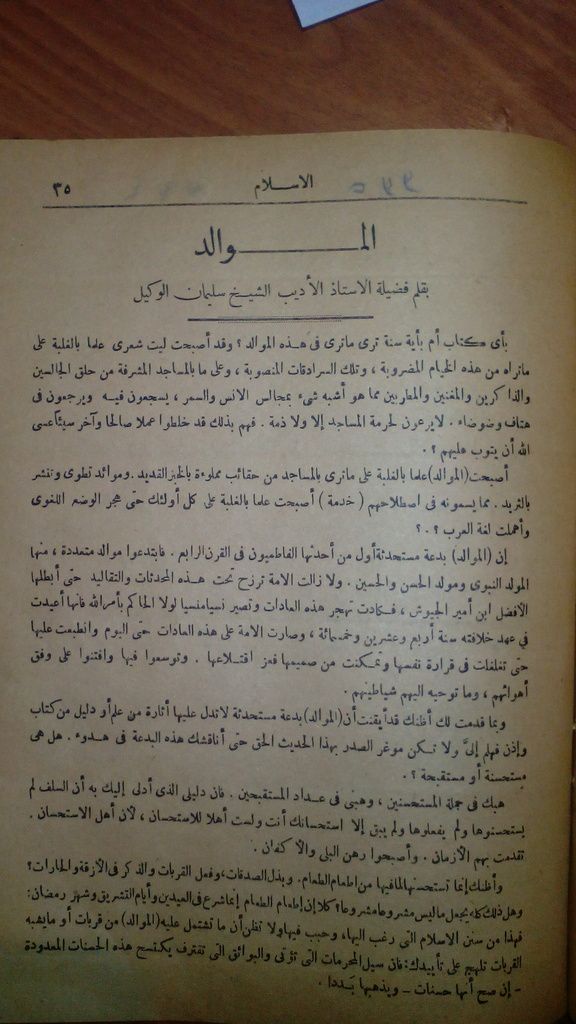 الاسلام ٣٥
الموالد
بقلم فضيلة الاستاذ الأديب الشيخ سليمان الوكيل
بأى كتاب أم بأية سنة ترى ماترى فى هذه الموالد ؟ وقد أصبحت ليت شعرى علما بالغلبة على
ماتراه من هذه الخيام المضروبة ، وتلك السرادقات المنصوبة ، وعلى ما بالمساجد المشرفة من حلق الجالسين
والذاكرين والمغنين والمطربين مما هو أشبه شىء بمجالس الانس والسمر ، يسجعون فيه ويرجعون فى
هتاف وضوضاء . لايرعون لحرمة المساجد إلا ولا ذمة . فهم بذلك قد خلطوا عملا صالحا وآخر سيئا عسى
الله أن يتوب عليهم ؟ .
أصبحت (الموالد) علما بالغلبة على ماترى بالمساجد من حقائب مملوءة بالخبز القديد . وموائد تطوى وتنشر
بالثريد . مما يسمونه فى اصطلاحهم ( خدمة ) أصبحت علما بالغلبة على كل أولئك حتى هجر الوضع اللغوى
وأهملت لغة العرب ؟ . ؟
إن (الموالد) بدعة مستحدثة أول من أحدثها الفاطميون فى القرن الرابع . فابتدعوا موالد متعددة ، منها
المولد النبوى ومولد الحسن والحسين . ولا زالت الامة ترزح تحت هذه المحدثات والتقاليد حتى أبطلها
الأفضل ابن أمير الجيوش ، فكادت تهجر هذه العادات وتصير نسيا منسيا لولا الحاكم بأمر الله فانها أعيدت
فى عهد خلافته سنة أربع وعشرين وخمسمائة ، وصارت الامة على هذه العادات حتى اليوم وانطبعت عليها
حتى تغلغلت فى قرارة نفسها وتمكنت من صميمها فعز اقتلاعها . وتوسعوا فيها وافتنوا على وفق
أهوائهم ، وما توحيه اليهم شياطينهم .
وبما قدمت لك أظنك قد أيقنت أن (الموالد) بدعة مستحدثة لاتدل عليها أثارة من علم أو دليل من كتاب
وإذن فهلم إلىّ ولا تكن موغر الصدر بهذا الحديث الحق حتى أناقشك هذه البدعة فى هدوء . هل هى
مستحسنة أو مستقبحة ؟ .
هبك فى جملة المستحسنين ، وهبنى فى عداد المستقبحين . فان دليلى الذى أدلى إليك به أن السلف لم
يستحسنوها ولم يفعلوها ولم يبق إلا استحسانك أنت ولست أهلا للاستحسان ، لأن أهل الاستحسان .
تقدمت بهم الأزمان . وأصبحوا رهن البلى والأكفان .
وأظنك إنما تستحسنها لما فيها من إطعام الطعام . وبذل الصدقات ، وفعل القربات والذكر فى الأزقة والحارات ؟
وهل ذلك كله يجعل ماليس مشروعا مشروعا ؟ كلا إن إطعام الطعام إنما شرع فى العيدين وأيام التشريق وشهر رمضان :
فهذا من سنن الاسلام التى رغب اليها ، وحبب فيها ولا تظن أن ما تشتمل عليه (الموالد) من قربات أو مايشبه
القربات تلهج على تأييدك : فان سيل المحرمات التى تؤتى والبوائق التى تقترف يكتسح هذه الحسنات المعدودة
- إن صح أنها حسنات - ويذهبها بددا .